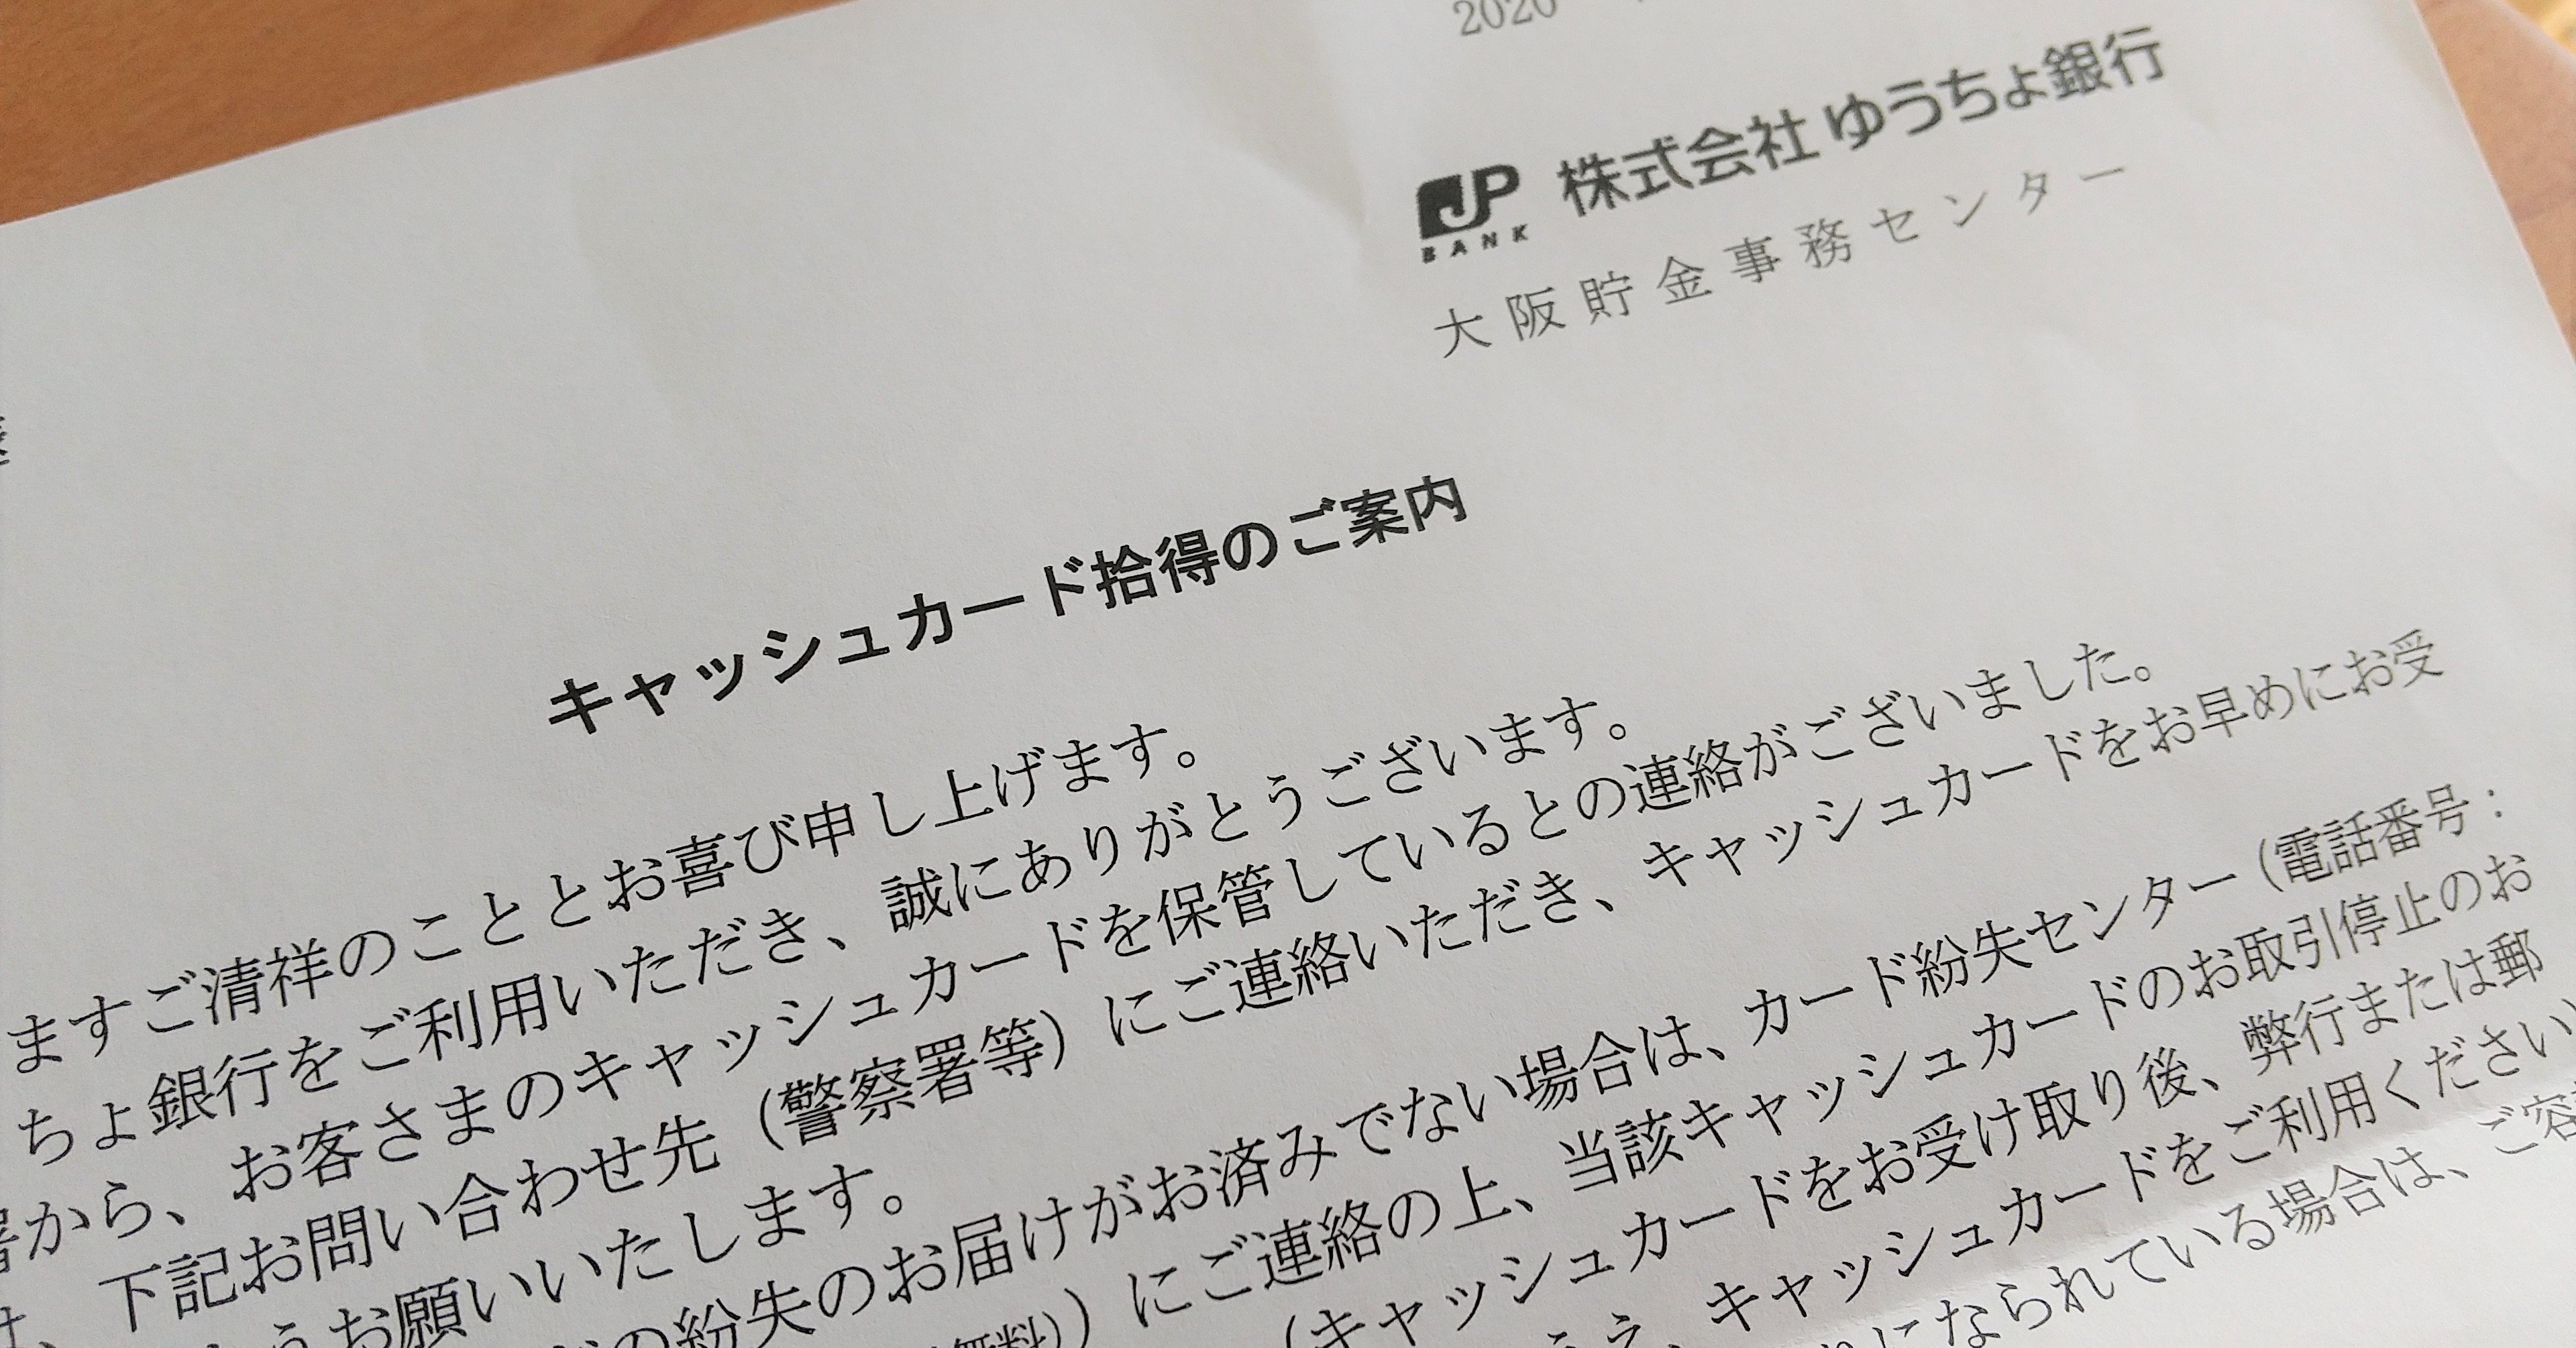 2020
JP
BANK
株式会社 ゆうちょ銀行
大阪貯金事務センター
キャッシュカード拾得のご案内
ますご清祥のこととお喜び申し上げます。
ちょ銀行をご利用いただき、誠にありがとうございます。
から、お客さまのキャッシュカードを保管しているとの連絡がございました。
下記お問い合わせ先（警察署等）にご連絡いただき、キャッシュカードをお早めにお受
うお願いいたします。
の紛失のお届けがお済みでない場合は、カード紛失センター（電話番号：
無料）にご連絡の上、当該キャッシュカードのお取引停止のお
（キャッシュカードをお受け取り後、弊行または郵
うえ、キャッシュカードをご利用ください
になられている場合は、ご容